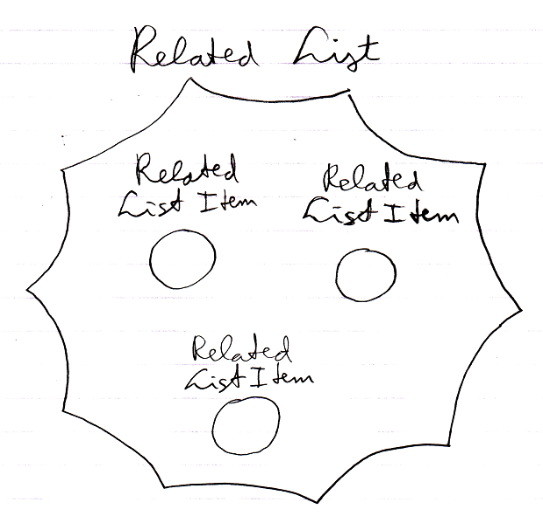 Related List
Related
List Item
Related
List Item
Related
List Item